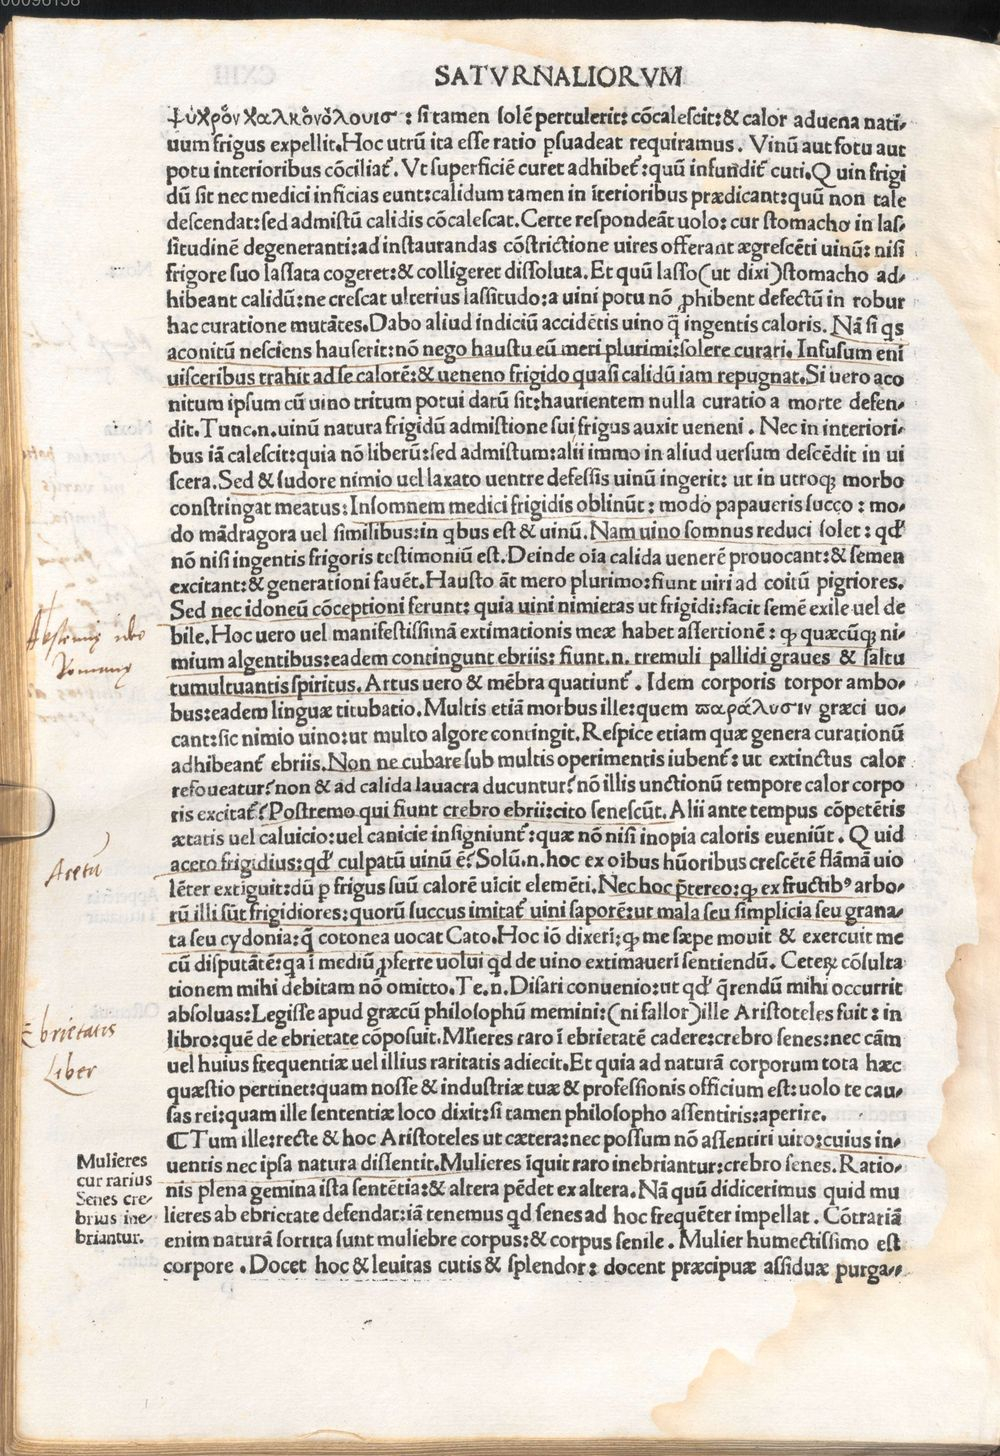 SATVRNALIORVM
ψύχρὸν χαλκὸνὅλουισ : si tamen solẽ pertulerit: cõcalescit:& calor aduena nati-
uum frigus expellit.Hoc utrũ ita esse ratio ꝑsuadeat requiramus. Vinũ aut fotu aut
potu interioribus cõciliat᷑. Vt superficiẽ curet adhibet᷑:quũ infundit᷑ cuti.Q uin frigi
dũ sit nec medici inficias eunt:calidum tamen in ĩterioribus prædicant:quũ non tale
descendat:sed admistũ calidis cõcalescat.Certe respondeãt uolo: cur stomacho in las-
situdinẽ degeneranti:ad instaurandas cõstrictione uires offerant ægrescẽti uinũ: nisi
frigore suo lassata cogeret:& colligeret dissoluta.Et quũ lasso(ut dixi)stomacho ad-
hibeant calidũ:ne crescat ulterius lassitudo:a uini potu nõ ꝓhibent defectũ in robur
hac curatione mutãtes.Dabo aliud indiciũ accidẽtis uino q̃ ingentis caloris. Nã si qs
aconitũ nesciens hauserit:nõ nego haustu eũ meri plurimi:solere curari. Infusum eni
uisceribus trahit ad se calorẽ:& ueneno frigido quasi calidũ iam repugnat.Si uero aco
nitum ipsum cũ uino tritum potui datũ sit:haurientem nulla curatio a morte defen-
dit.Tunc.n.uinũ natura frigidũ admistione sui frigus auxit ueneni. Nec in interiori-
bus iã calescit:quia nõ liberũ:sed admistum:alii immo in aliud uersum descẽdit in ui
scera.Sed & sudore nimio uel laxato uentre defessis uinũ ingerit: ut in utroq; morbo
constringat meatus:Insomnem medici frigidis oblinũt: modo papaueris succo: mo-
do mãdragora uel similibus:in qbus est & uinũ. Nam uino somnus reduci solet: qd'
nõ nisi ingentis frigoris testimoniũ est.Deinde oĩa calida uenerẽ prouocant:& semen
excitant:& generationi fauẽt.Hausto ãt mero plurimo:fiunt uiri ad coitũ pigriores.
Sed nec idoneũ cõceptioni ferunt: quia uini nimietas ut frigidi:facit semẽ exile uel de
bile.Hoc uero uel manifestissimã extimationis meæ habet assertionẽ: ꝙ quæcũq; ni-
mium algentibus:eadem contingunt ebriis: fiunt.n. tremuli pallidi graues & saltu
tumultuantis spiritus. Artus uero & mẽbra quatiunt᷑. Idem corporis torpor ambo-
bus:eadem linguæ titubatio.Multis etiã morbus ille:quem παράλυσιν græci uo-
cant:sic nimio uino:ut multo algore contingit.Respice etiam quæ genera curationũ
adhibeant᷑ ebriis.Non ne cubare sub multis operimentis iubent᷑: ut extinctus calor
refoueatur?non & ad calida lauacra ducuntur?nõ illis unctionũ tempore calor corpo
ris excitat᷑?Postremo qui fiunt crebro ebrii:cito senescũt.Alii ante tempus cõpetẽtis
ætatis uel caluicio:uel canicie insigniunt᷑:quæ nõ nisi inopia caloris eueniũt. Q uid
aceto frigidius:qd' culpatũ uinũ ẽ?Solũ.n.hoc ex oĩbus hũoribus crescẽtẽ flãmã uio
lẽter extiguit:dũ ꝑ frigus suũ calorẽ uicit elemẽti.Nec hoc p̃tereo:ꝙ ex fructibꝰ arbo-
rũ illi sũt frigidiores:quorũ succus imitat᷑ uini saporẽ:ut mala seu simplicia seu grana-
ta seu cydonia:q̃ cotonea uocat Cato.Hoc iõ dixeri:ꝙ me sæpe mouit & exercuit me
cũ disputãtẽ:qa ĩ mediũ ꝓferre uolui qd de uino extimaueri sentiendũ. Ceteꝝ cõsulta
tionem mihi debitam nõ omitto.Te.n.Disari conuenio:ut qd' q̃rendũ mihi occurrit
absoluas:Legisse apud græcũ philosophũ memini:(ni fallor)ille Aristoteles fuit: in
libro:quẽ de ebrietate cõposuit.Mlieres raro ĩ ebrietatẽ cadere:crebro senes:nec cãm
uel huius frequentiæ uel illius raritatis adiecit.Et quia ad naturã corporum tota hæc
quæstio pertinet:quam nosse & industriæ tuæ & professionis officium est:uolo te cau-
sas rei:quam ille sententiæ loco dixit:si tamen philosopho assentiris:aperire.
¶Tum ille:recte & hoc Aristoteles ut cætera:nec possum nõ assentiri uiro:cuius in-
uentis nec ipsa natura dissentit.Mulieres ĩquit raro inebriantur:crebro senes.Ratio-
nis plena gemina ista sentẽtia:& altera pẽdet ex altera.Nã quũ didicerimus quid mu
lieres ab ebrietate defendat:iã tenemus qd senes ad hoc frequẽter impellat. Cõtrariã
enim naturã sortita sunt muliebre corpus:& corpus senile. Mulier humectissimo est
corpore. Docet hoc & leuitas cutis & splendor: docent præcipuæ assiduæ purga-
Acetũ
Ebrietatis
Liber
Mulieres
cur rarius
Senes cre-
brius ine-
briantur.